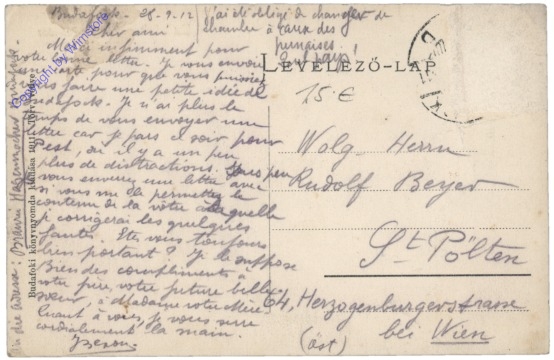 Budafok - 28-9-12
j'ai été obligé de changer de
chambre à cause des
punaises
Cher ami
Merci infiniment pour
votre bonne lettre. Je vous envoie
une carte pour que vous puissiez
vous faire une petite idée de
Budafok. Je n'ai plus le
temps de vous envoyer une
lettre car je pars ce soir pour
Pest, où il y a un peu
plus de distractions. Sous peu
vous enverrai une lettre avec
si vous me la permettez le
contenu de la vôtre à laquelle
je corrigerai les quelques
fautes. Etes vous toujours
bien portant? Je le suppose
Bien des compliments à
votre père, votre future belle
sœur, à Madame votre Mère
Quant à vous, je vous serre
cordialement la main.
LEVELEZŐ-LAP
15.-€
Wolg. Herrn
Rudolf Beyer
St Pölten
64, Herzogenburgerstrasse
bei Wien
(öst)
Budafoki könyvnyomda kiadása 1911.
Copyright by Wimstore